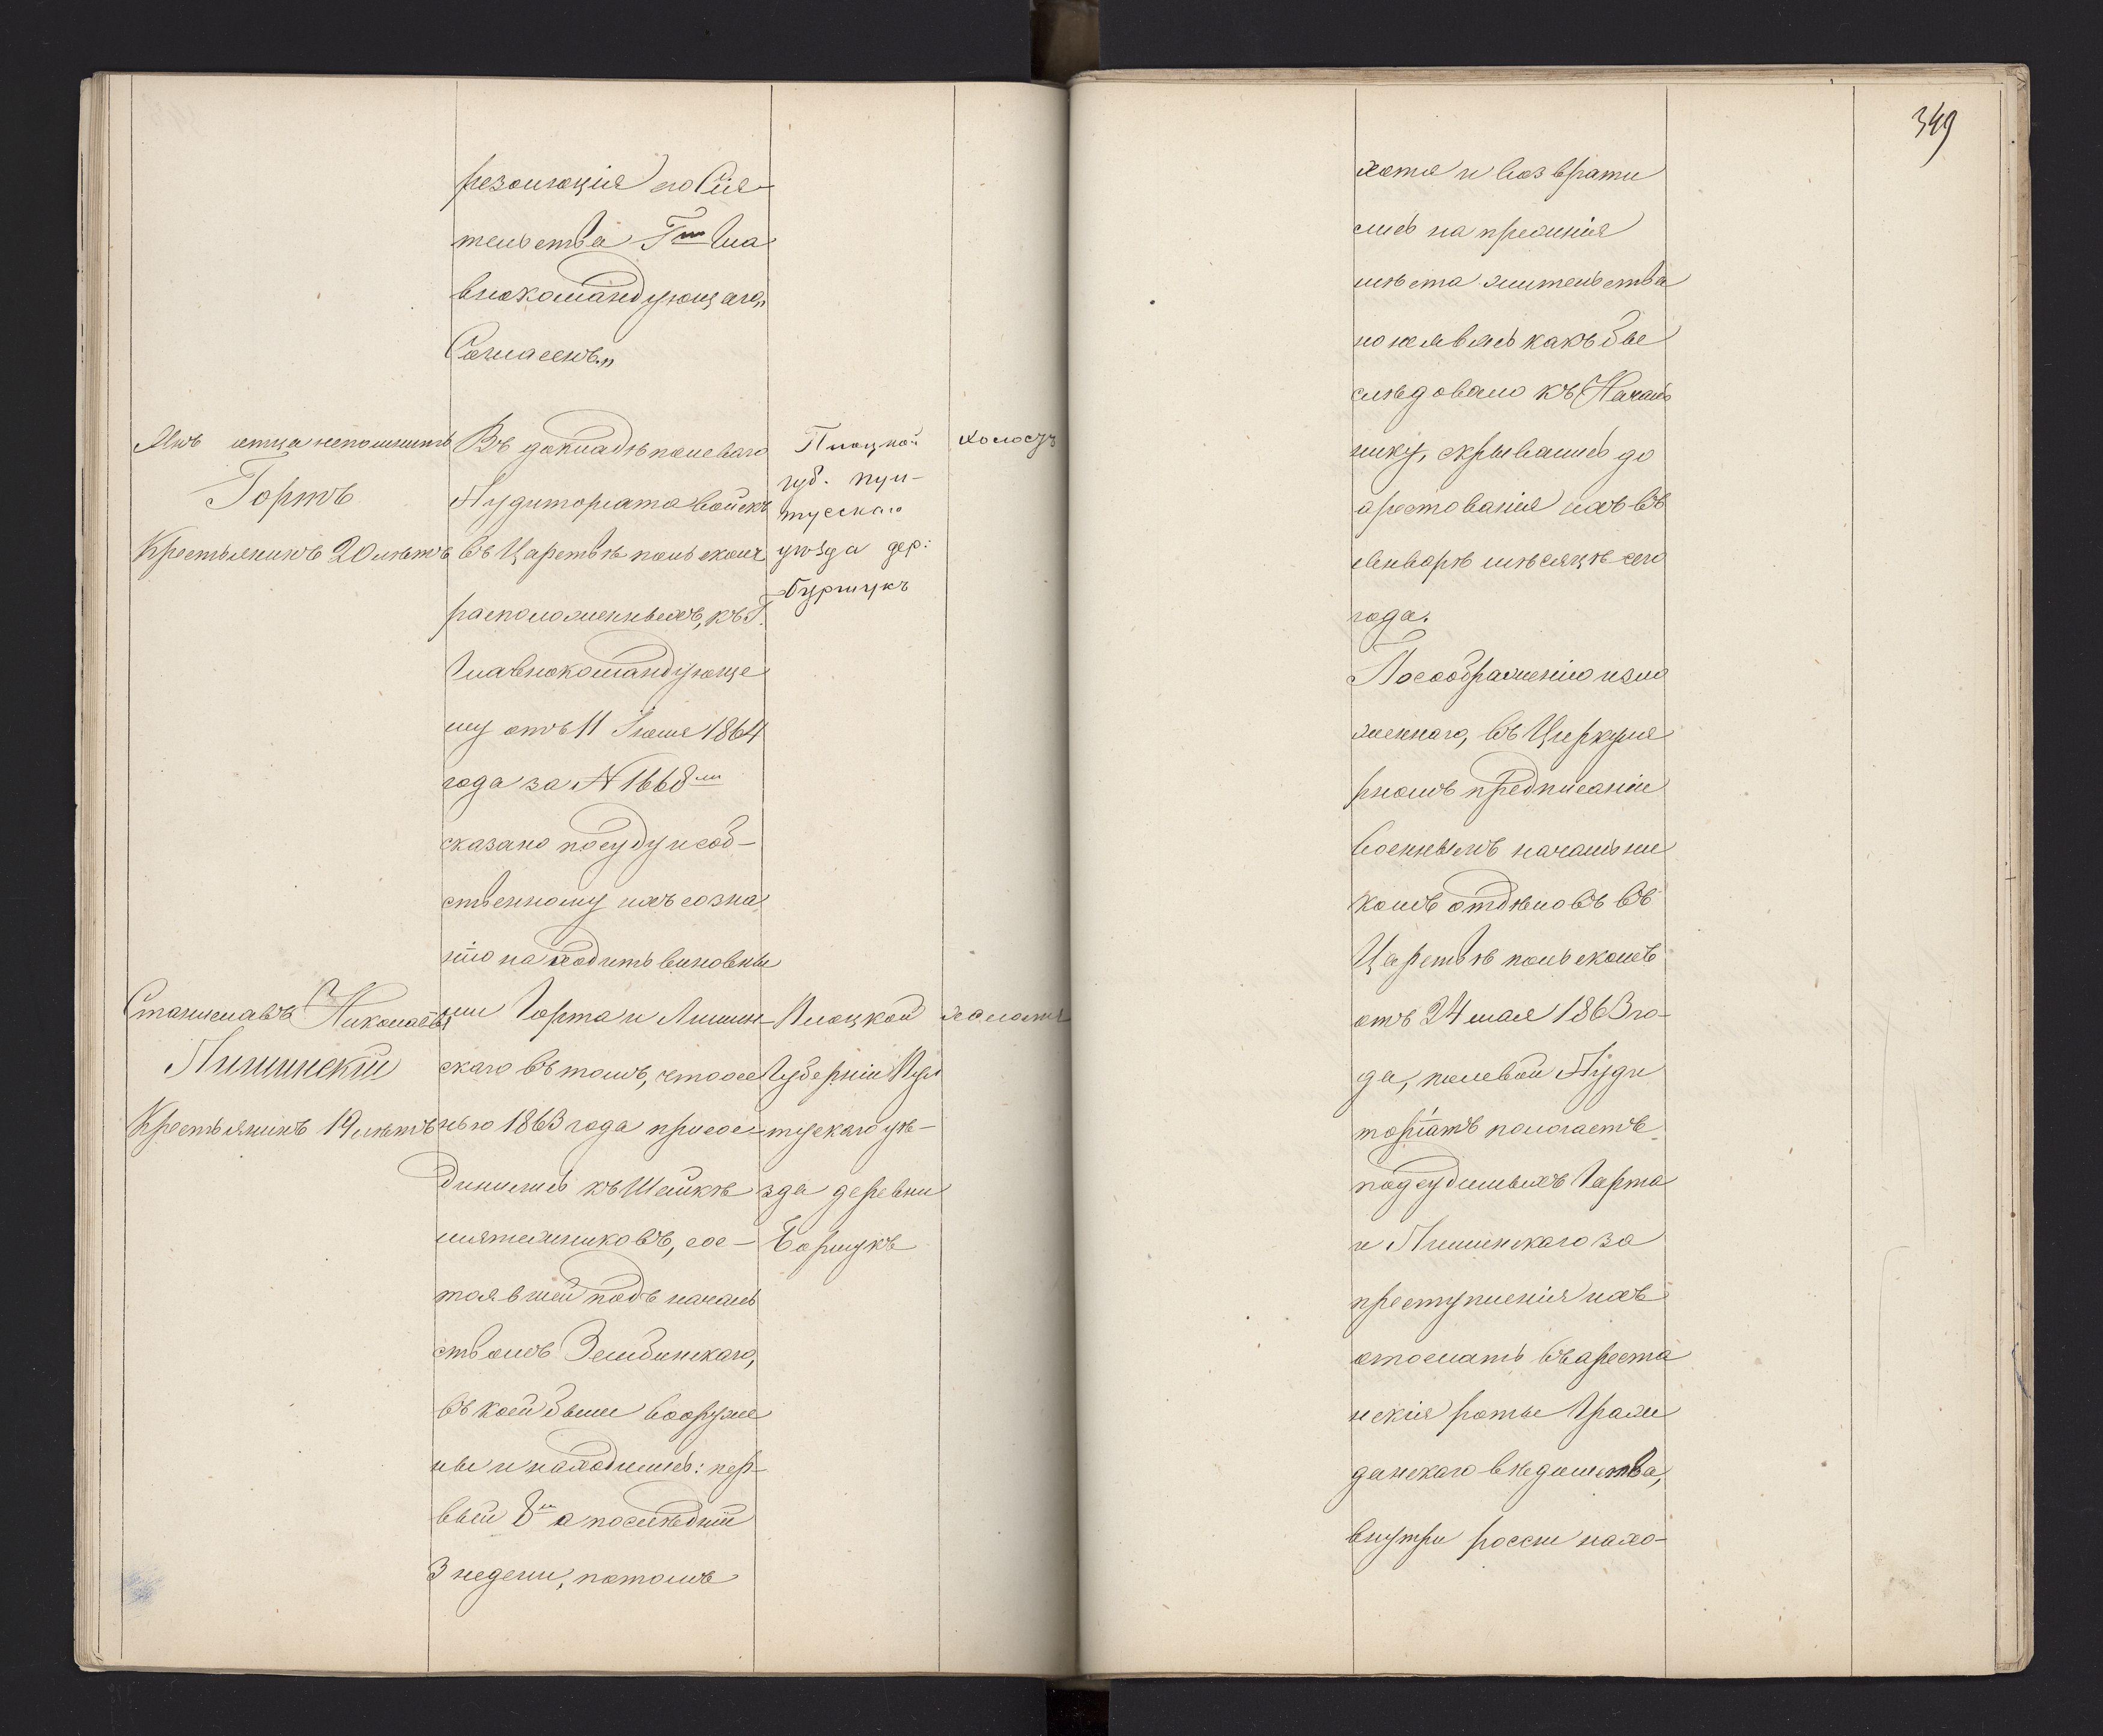 резолюція его Сія-
тельства Г^на Гла
внокомандующаго„
Согласенъ.„
Янъ отца непомнитъ
Гортъ
Крестьянинъ 20 лѣтъ
Въ докладѣ полеваго
Аудиторіата войскъ
въ Царствѣ польскомъ
расположенныхъ, къ Г.
Главнокомандующе
му отъ 11 Іюля 1864
года за N 1668^мъ
сказано по суду и соб-
ственному ихъ созна
нію находитъ виновны
ми Горта и Лишин-
скаго въ томъ, что осе
нью 1863 года присое-
динились къ Шайкѣ
мятежниковъ, сос-
тоявшей подъ началь
ствомъ Зембинскаго,
въ коей были вооруже
ны и находились: пер-
вый 8^м а послѣдній
3 недели, потомъ
Плоцкой
губ. пул-
тусскаго
уѣзда дер:
Бурлукъ
холостъ
Станиславъ Николаевъ
Лишинскій
Крестьянинъ 19 лѣтъ
Плоцкой
Губерніи Пул
тускаго уѣ-
зда деревни
Борлукъ
холостъ
349
хотя и возврати
лись на прежнія
мѣста жительства
но не явясь какъ бы
слѣдовало къ Началь
нику, скрывались до
арестованія ихъ въ
Январѣ мѣсяцѣ сего
года.
По соображенію изло
женнаго, въ Циркуля
рномъ предписаніи
военнымъ начальни
комъ отдѣловъ въ
Царствѣ польскомъ
отъ 24 мая 1863 го-
да, полевой Ауди
торіатъ полагаетъ
подсудимыхъ Горта
и Лишинскаго за
преступленія ихъ
отослать въ ареста
нскія роты Граж
данскаго вѣдомства,
внутри россіи нахо-